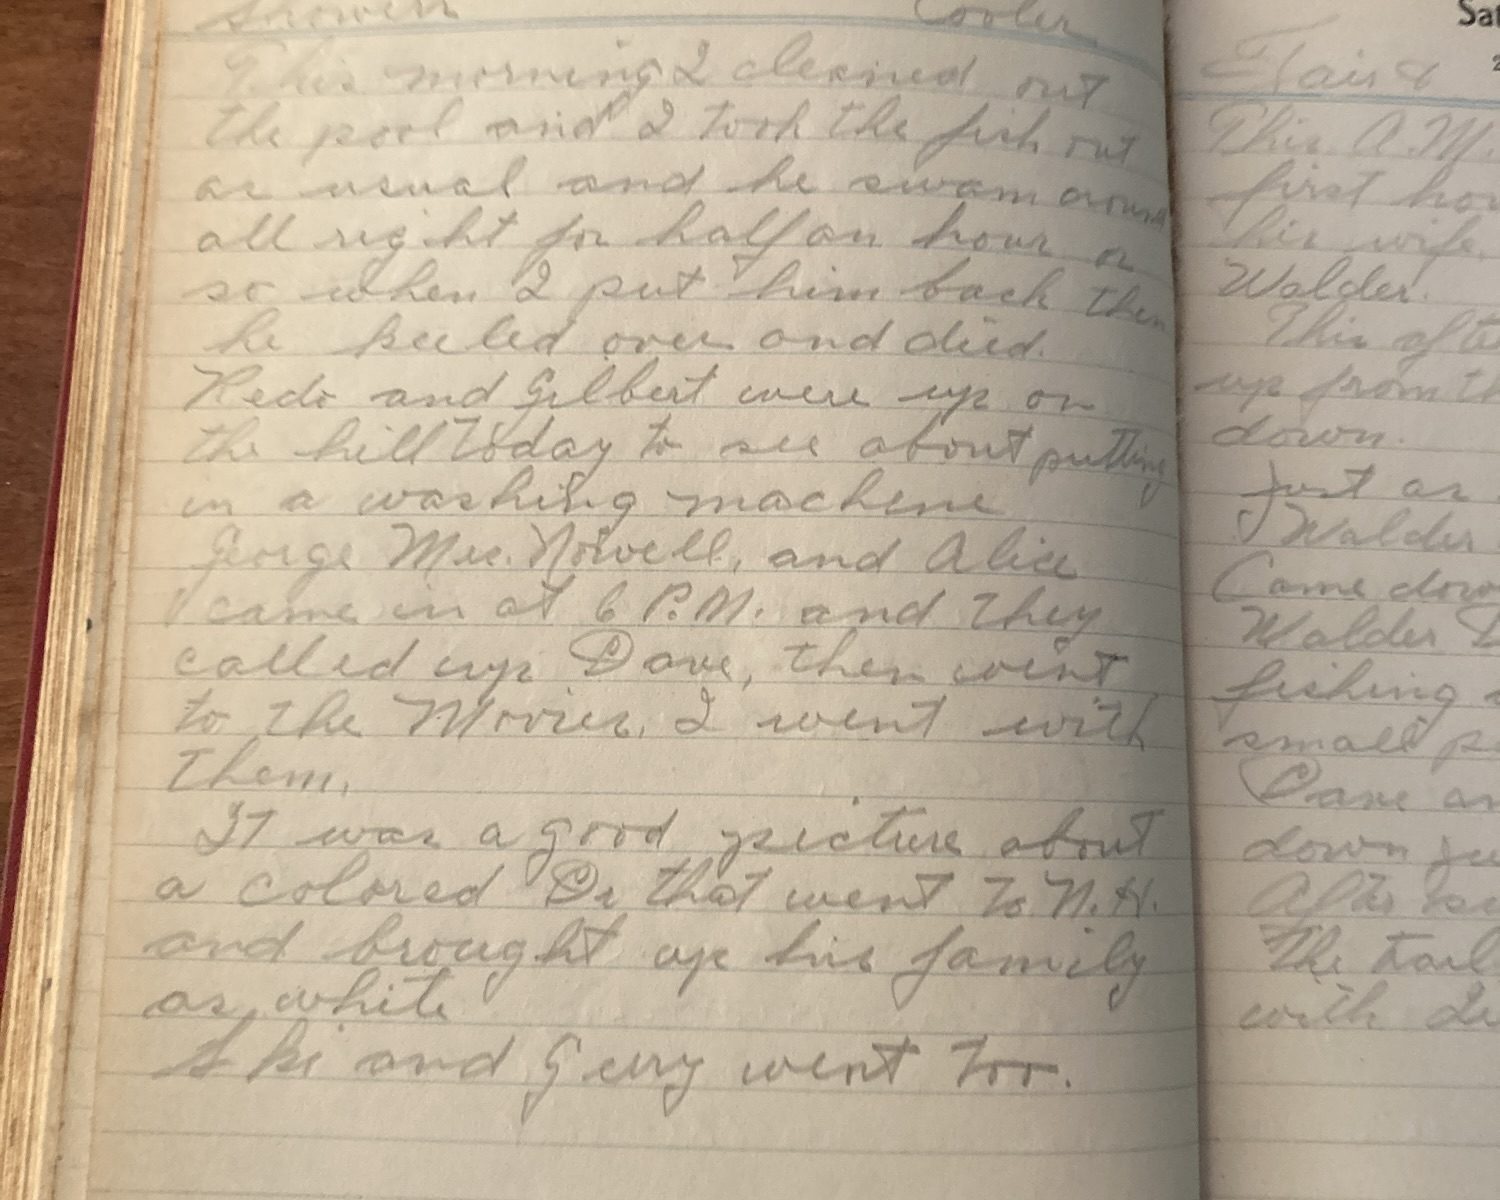 Showers Cooler
This morning I cleaned out
the pool and I took the fish out
as usual and he swam around
all right for half an hour or
so when I put him back then
he keeled over and died.
and Gilbert were up on
the hill today to see about putting
in a washing machine
George Mrs. Nowell, and Alice
came in at 6 P.M. and they
called up Dave, then went
to the Movies, I went with
them.
It was a good picture about
a colored Dr that went to N.H.
and brought up his family
as white
Ski and Gerry went too.
Sat
2
Fair &
This A.M.
first
his wife.
Walder.
This
up from
down.
Just as
Walder
Came down
Walder
fishing
small
Dave
down
After
The
with